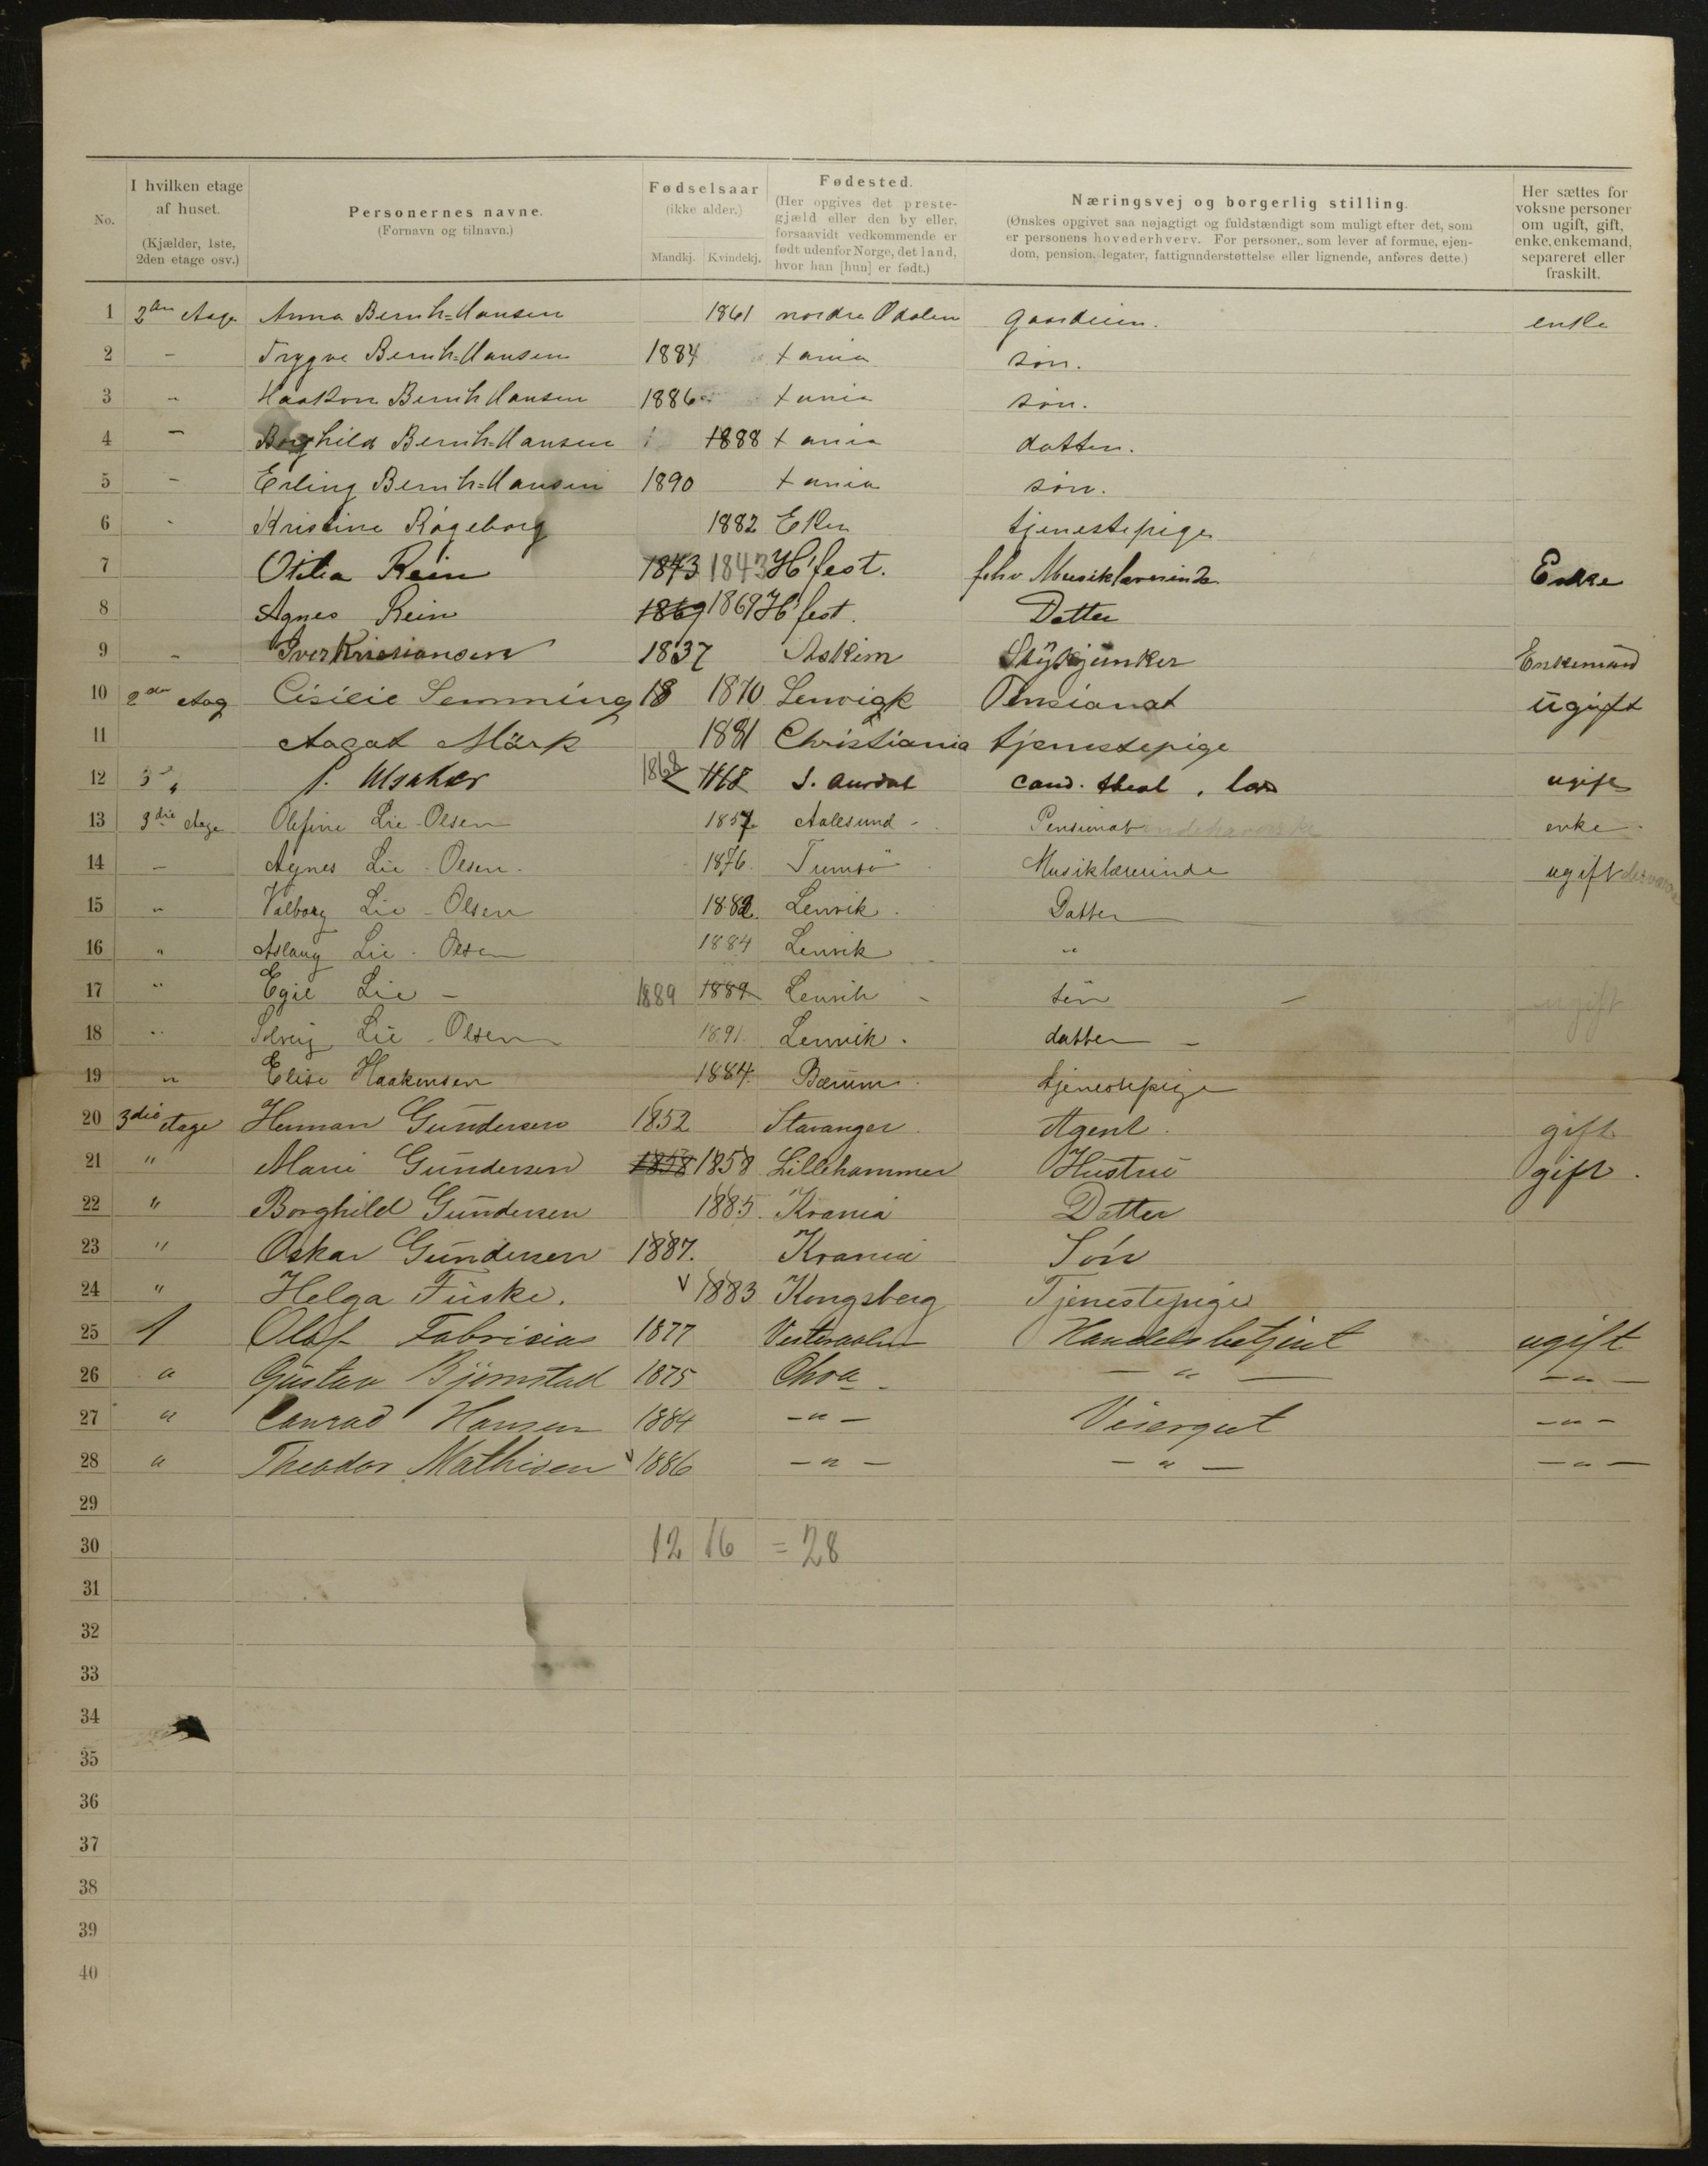 No.
I hvilken etage af huset. (Kjælder, 1ste, 2den etage osv.)
Personernes navne. (Fornavn og tilnavn.)
Fødselsaar (ikke alder.) Mandkj. Kvindekj.
Fødested. (Her opgives det prestegjæld eller den by eller, forsaavidt vedkommende er født udenfor Norge, det land, hvor han [hun] er født.)
Næringsvej og borgerlig stilling. (Ønskes opgivet saa nøjagtigt og fuldstændigt som muligt efter det, som er personens hovederhverv. For personer, som lever af formue, ejendom, pension, legater, fattigunderstøttelse eller lignende, anføres dette.)
Her sættes for voksne personer om ugift, gift, enke, enkemand, separeret eller fraskilt.
1 2den Etage Anna Bernh=Hansen 1861 nordre Odalen enke
2 – Trygve Bernh=Hansen 1884 xania søn.
3 „ Haakon Bernh Hansen 1886 xania søn.
4 – Borghild Bernh=Hansen 1888 xania datter.
5 – Erling Bernh=Hansen 1890 xania søn.
6 - Kristine Rógeborg 1882 Eker tjenestepige
7 Otilia Rein 1843 1843 H'fest. fhv Musiklærerinde Enke
8 Agnes Rein 1869 1869 H'fest. Datter
9 „ Iver Kristiansen 1837 Askim Stykjunker Enkemand
10 2den Etag Cisilie Semming 18 1870 Lenvigk Pensianat ugift
11 Aagot Mörk 1881 Christiania tjenestepige
12 3 „ 1868 1868 S. Aurdal cand. theol ugift
13 3die Etage Olefine Lie-Olsen 1857 Aalesund - Pensionat indehaverske enke
14 – Agnes Lie-Olsen. 1876. Tromsö Musiklærerinde ugift
15 „ Valborg Lie-Olsen 1882. Lenvik. Datter
16 „ Aslaug Lie-Olsen 1884 Lenvik „
17 „ Egil Lie - 1889 1889 Lenvik - sön – ugift
18 „ Solveig Lie-Olsen 1891. Lenvik. datter –
19 „ Elise Haakensen 1884. Bærum. tjenestepige
20 3die etage Herman Gundersen 1852 Stavanger Agent. gift
21 " Marie Gundersen 1858 1858 Lillehammer Hustru gift.
22 " Borghild Gundersen 1885. Krania Datter
23 " Oskar Gundersen 1887. Krania Søn
24 " Helga Fuske. 1883 Kongsberg Tjenestepige
25 1 Olaf Fabricius 1877 Vesteraalen Handelsbetjent ugift
26 " Gustav Bjørnstad 1875 Chra - — " — — " —
27 " Conrad Hansen 1884 — " — Visergut — " —
28 " Theodor Mathisen 1886 — " — — " — — " —
29
30 12 16 = 28
31
32
33
34
35
36
37
38
39
40